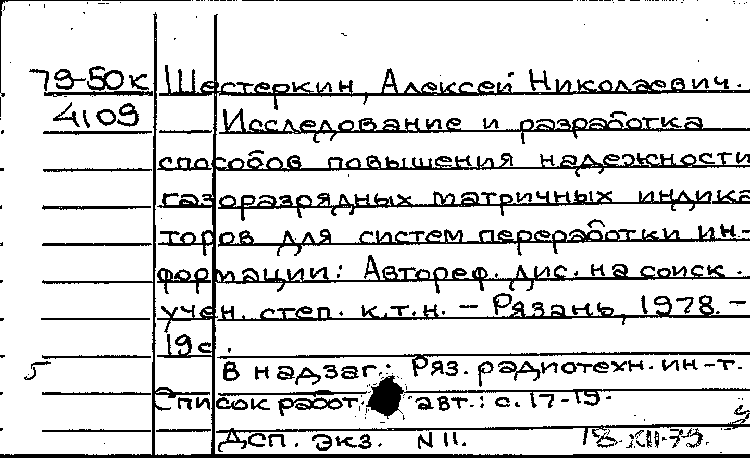 79-50к Шестеркин, Алексей Николаевич.
4109 Исследование и разработка
способов повышения надежности
газоразрядных матричных индика
торов для систем переработки ин-
формации: Автореф. дис. на соиск.
учен. степ. к.т.н. – Рязань, 1978. –
19с.
5 В надзаг.: Ряз. радиотехн. ин-т.
Список работ авт.: с. 17-19.
ДСП. экз. N 11. 18.XII.79.